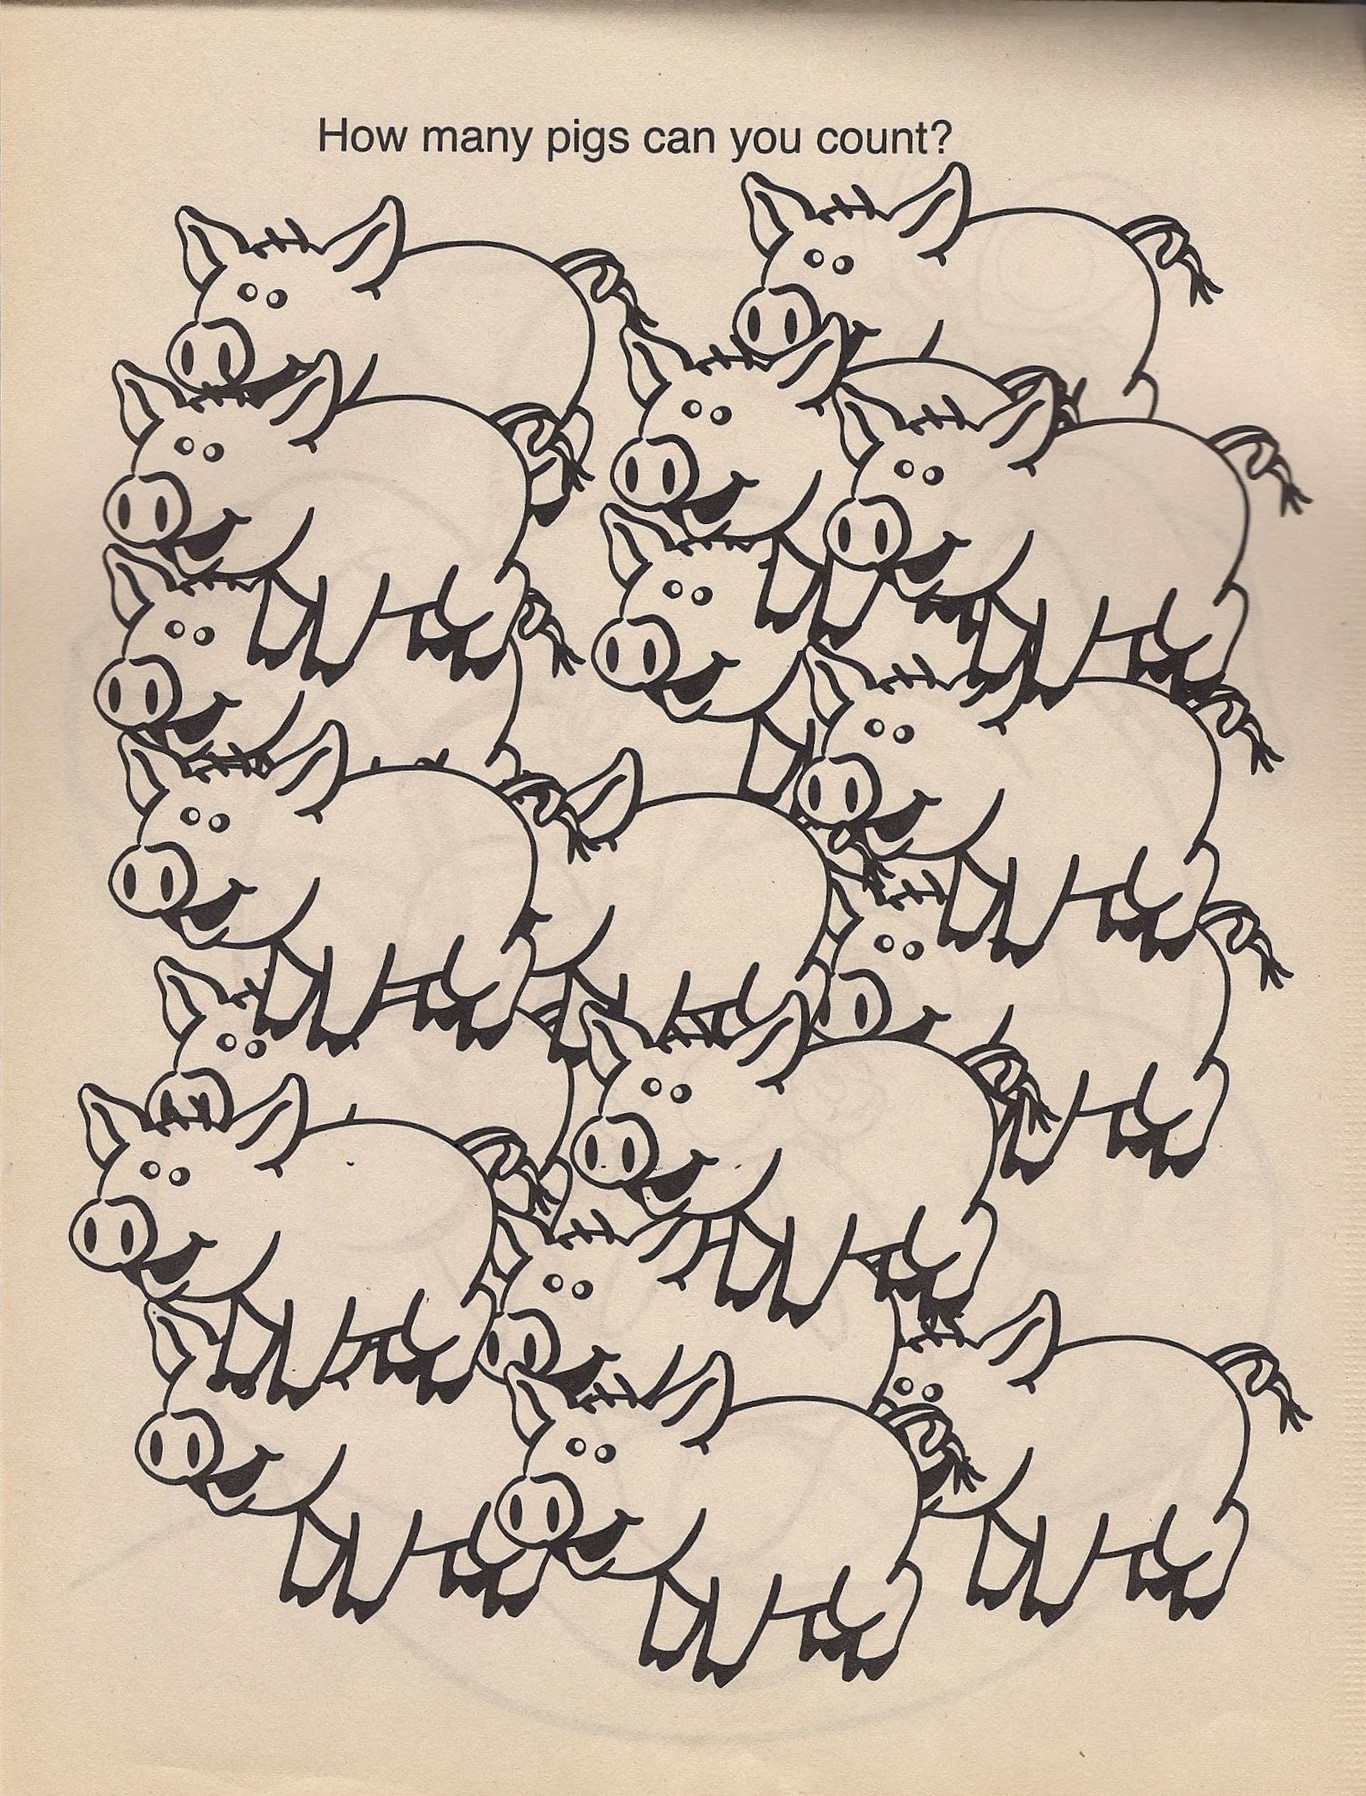 How many pigs can you count?